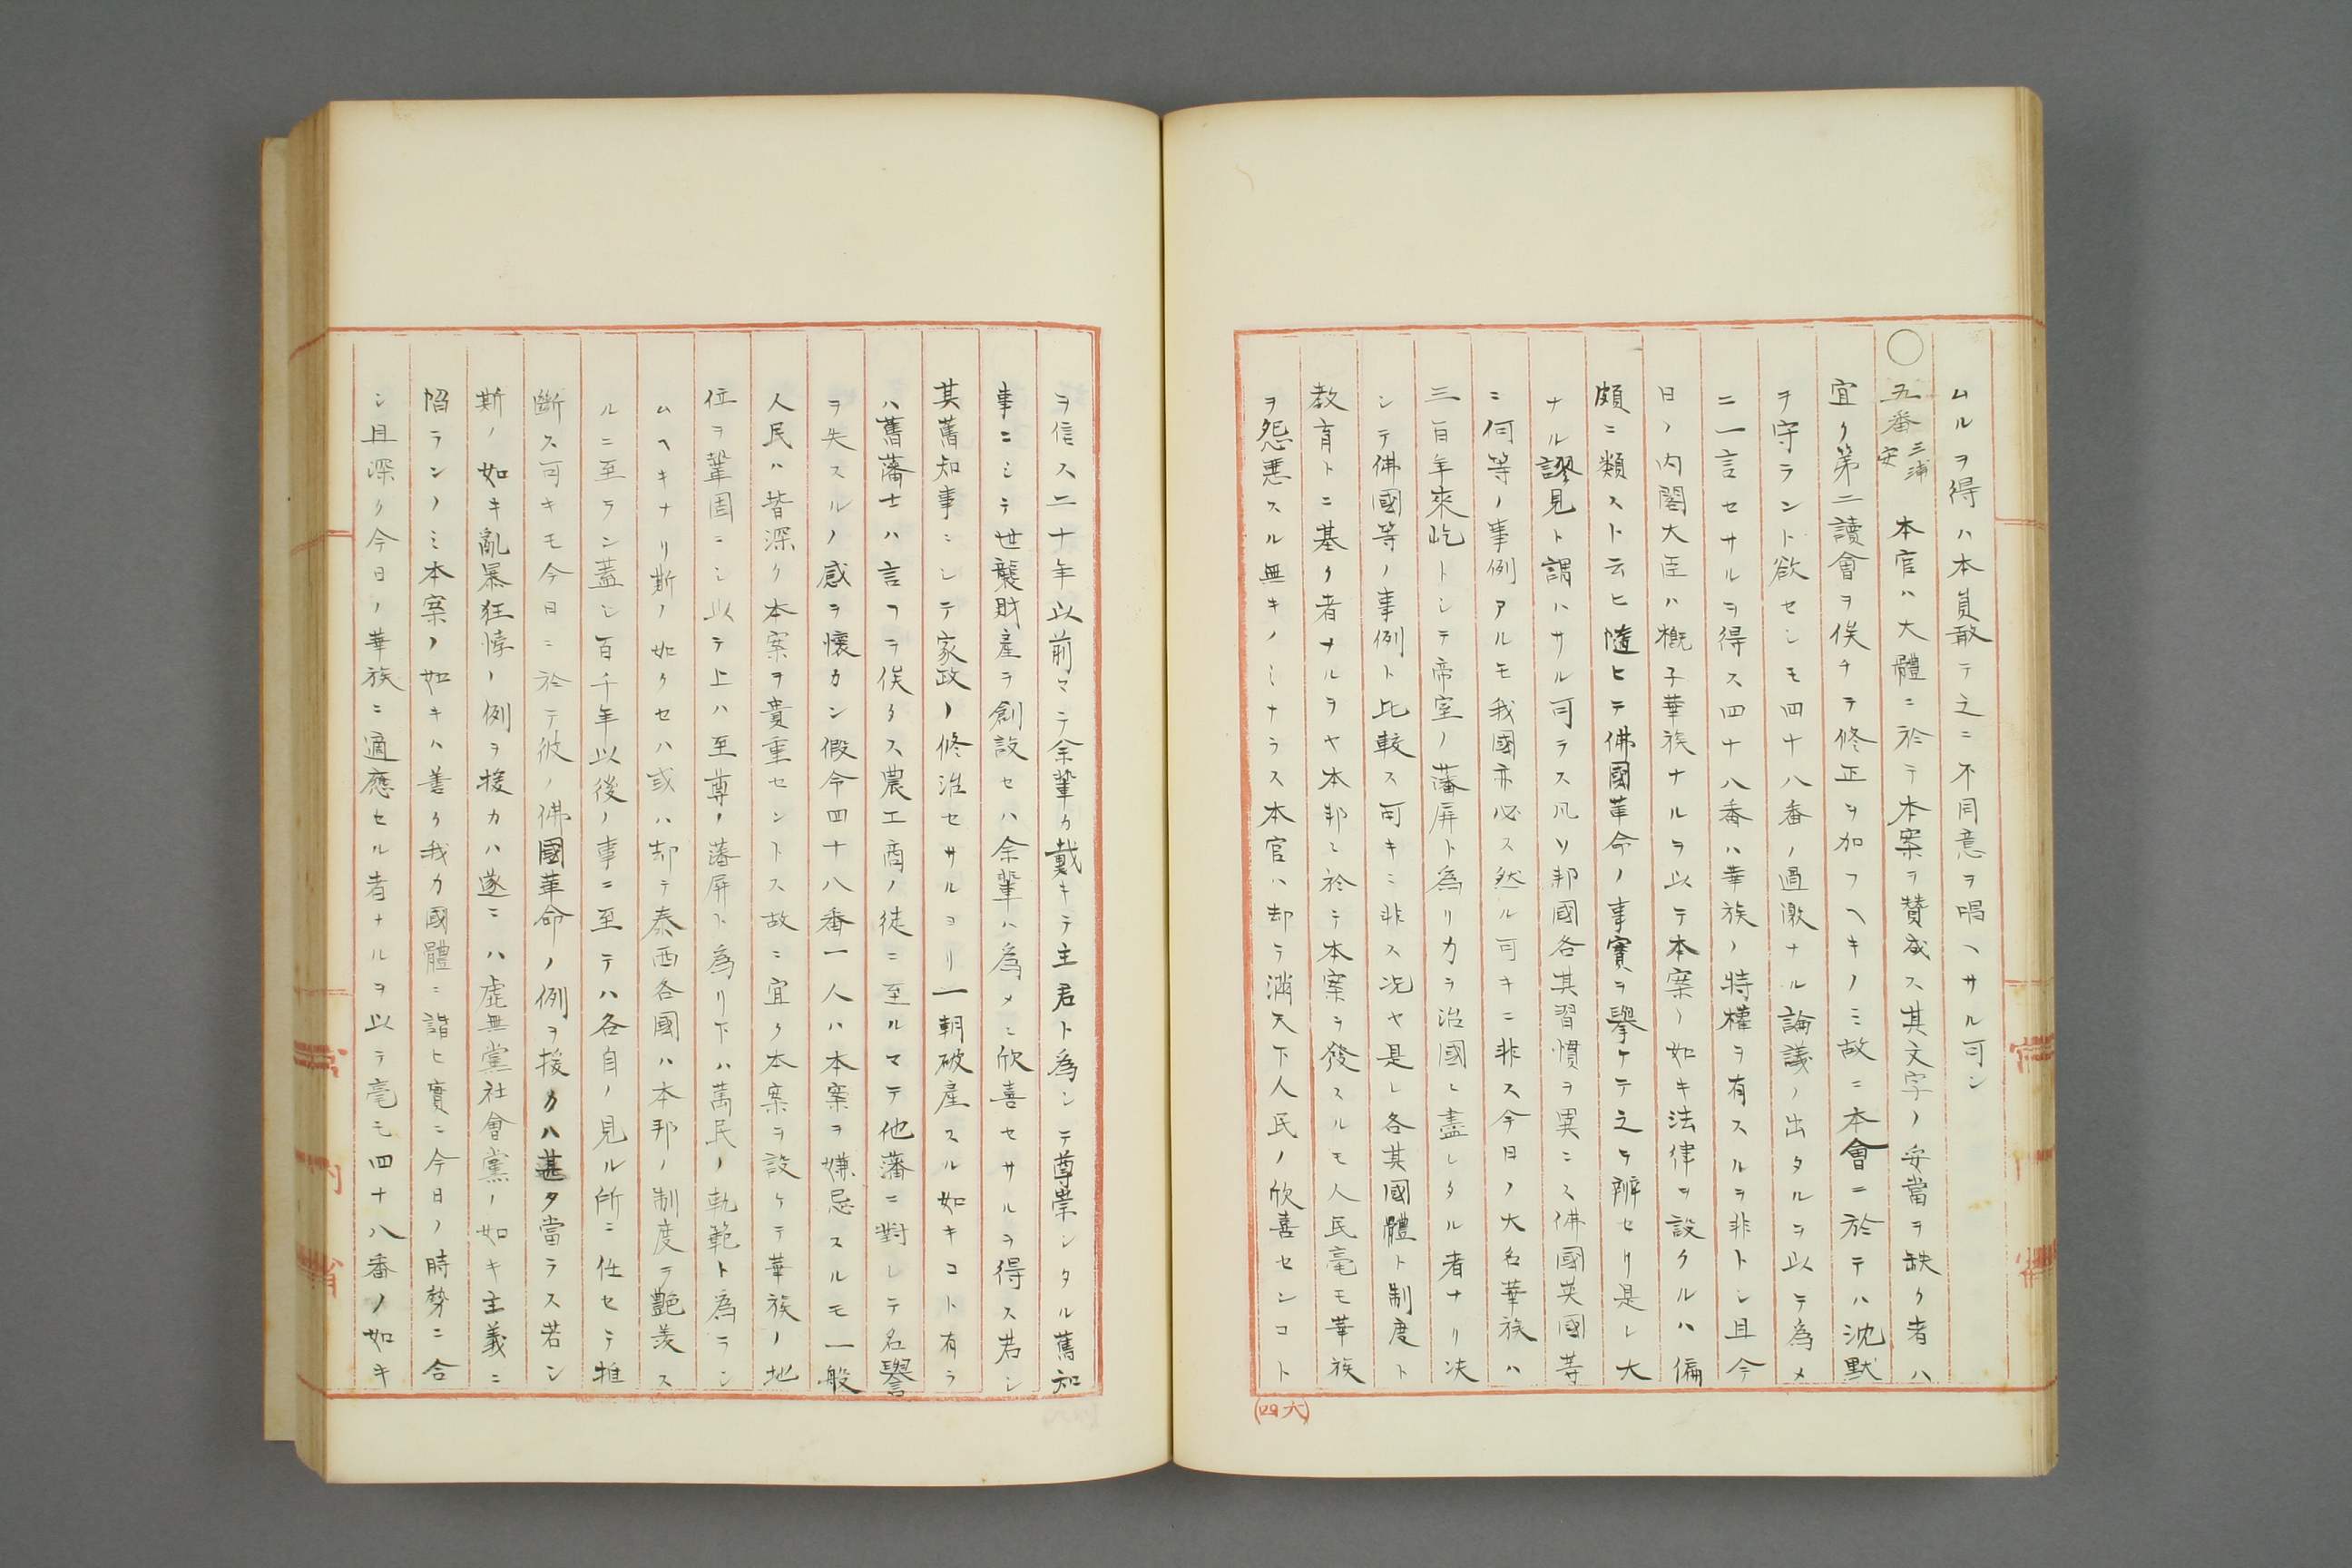 ムルヲ得ハ本員敢テ之ニ不同意ヲ唱ヘサル可シ
○五番三浦安 本官ハ大體ニ於テ本案ヲ賛成ス其文字ノ妥當ヲ缺ク者ハ
宜ク第二讀會ヲ俟チテ修正ヲ加フヘキノミ故ニ本會ニ於テハ沈默
ヲ守ラント欲セシモ四十八番ノ過激ナル論議ノ出タルヲ以テ爲メ
ニ一言セサルヲ得ス四十八番ハ華族ノ特權ヲ有スルヲ非トシ且今
日ノ内閣大臣ハ概子華族ナルヲ以テ本案ノ如キ法律ヲ設クルハ偏
頗ニ類スト云ヒ隨ヒテ佛國革命ノ事實ヲ擧ケテ之ヲ辨セリ是レ大
ナル謬見ト謂ハサル可ラス凡ソ邦國各其習慣ヲ異ニス佛國英國等
ニ何等ノ事例アルモ我國亦必ス然ル可キニ非ス今日ノ大名華族ハ
三百年來屹トシテ帝室ノ藩屏ト爲リ力ヲ治國ニ盡シタル者ナリ决
シテ佛國等ノ事例ト比較ス可キニ非ス况ヤ是レ各其國體ト制度ト
教育トニ基ク者ナルヲヤ本邦ニ於テ本案ヲ發スルモ人民毫モ華族
ヲ怨悪スル無キノミナラス本官ハ却テ滿天下人民ノ欣喜センコト
(四六)
ヲ信ス二十年以前マテ余輩カ戴キテ主君ト爲シテ尊崇シタル舊知
事ニシテ世襲財産ヲ創設セハ余輩ハ爲メニ欣喜セサルヲ得ス若シ
其舊知事ニシテ家政ノ修治セサルヨリ一朝破産スル如キコト有ラ
ハ舊藩士ハ言フヲ俟タス農工商ノ徒ニ至ルマテ他藩ニ對シテ名譽
ヲ失スルノ感ヲ懷カン假令四十八番一人ハ本案ヲ嫌忌スルモ一般
人民ハ皆深ク本案ヲ貴重セントス故ニ宜ク本案ヲ設ケテ華族ノ地
位ヲ鞏固ニシ以テ上ハ至尊ノ藩屏ト爲リ下ハ萬民ノ軌範ト爲ラシ
ムヘキナリ斯ノ如クセハ或ハ却テ泰西各國ハ本邦ノ制度ヲ艶羨ス
ルニ至ラン蓋シ百千年以後ノ事ニ至テハ各自ノ見ル所ニ任セテ推
斷ス可キモ今日ニ於テ彼ノ佛國革命ノ例ヲ援カハ甚タ當ラス若シ
斯ノ如キ亂暴狂悖ノ例ヲ援カハ遂ニハ虚無黨社會黨ノ如キ主義ニ
陷ランノミ本案ノ如キハ善ク我カ國體ニ諧ヒ實ニ今日ノ時勢ニ合
シ且深ク今日ノ華族ニ適應セル者ナルヲ以テ毫モ四十八番ノ如キ